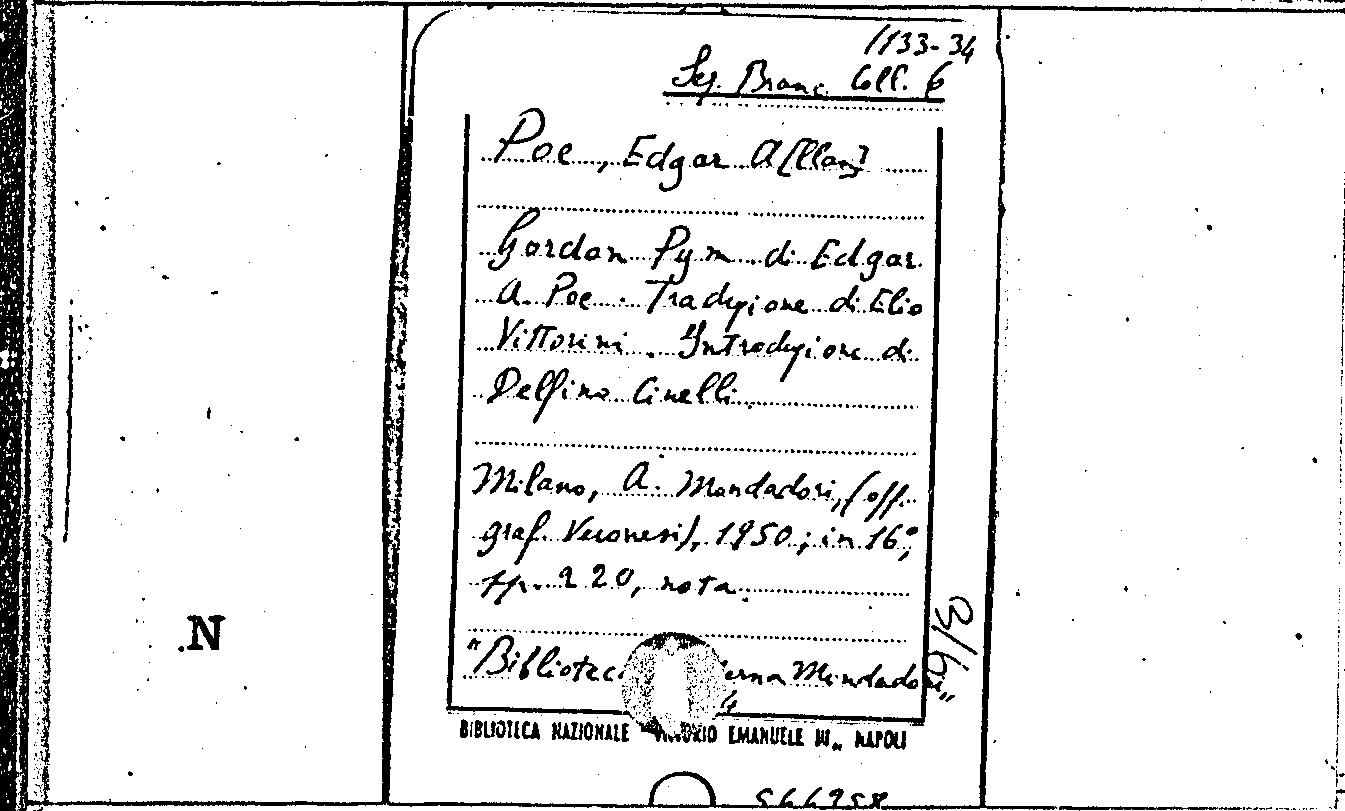 1133-34
Sez. Branc. Coll. 6
Poe, Edgar A[llan]
Gordon Pym di Edgar
A. Poe. Traduzione di Elio
Vittorini. Introduzione di
Delfino Cinelli.
Milano, A. Mondadori, (off.
graf. Veronesi), 1950; in 16°,
pp. 220, nota.
"Biblioteca Mondadori"
3/6
BIBLIOTECA NAZIONALE EMANUELE III„ NAPOLI
N